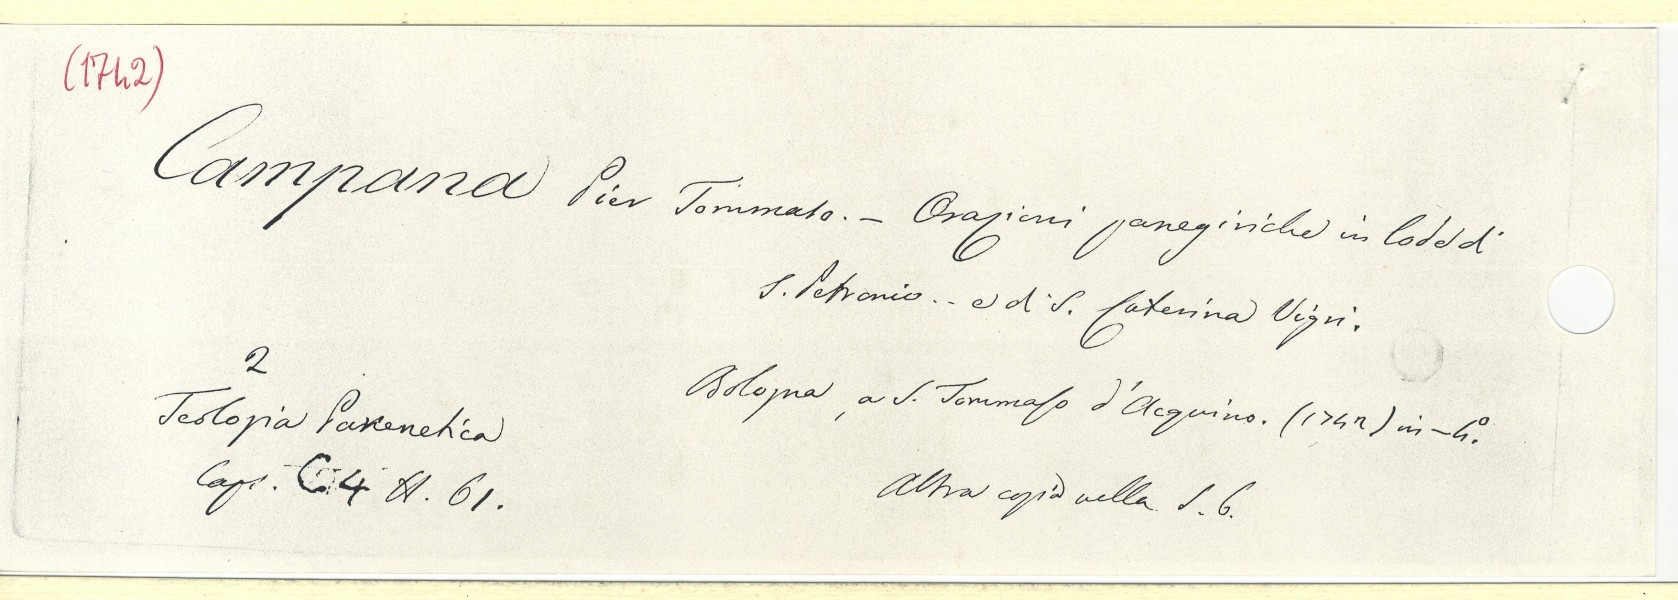 (1742)
Campana Pier Tommaso. - Orazioni panegiriche in lode di
S. Petronio.. e di S. Caterina Vigri.
Bologna, a S. Tommaso d'Acquino. (1742) in-4°.
Altra copia nella S. G.
2
Teologia Parenetica
Caps. C4 N. 61.